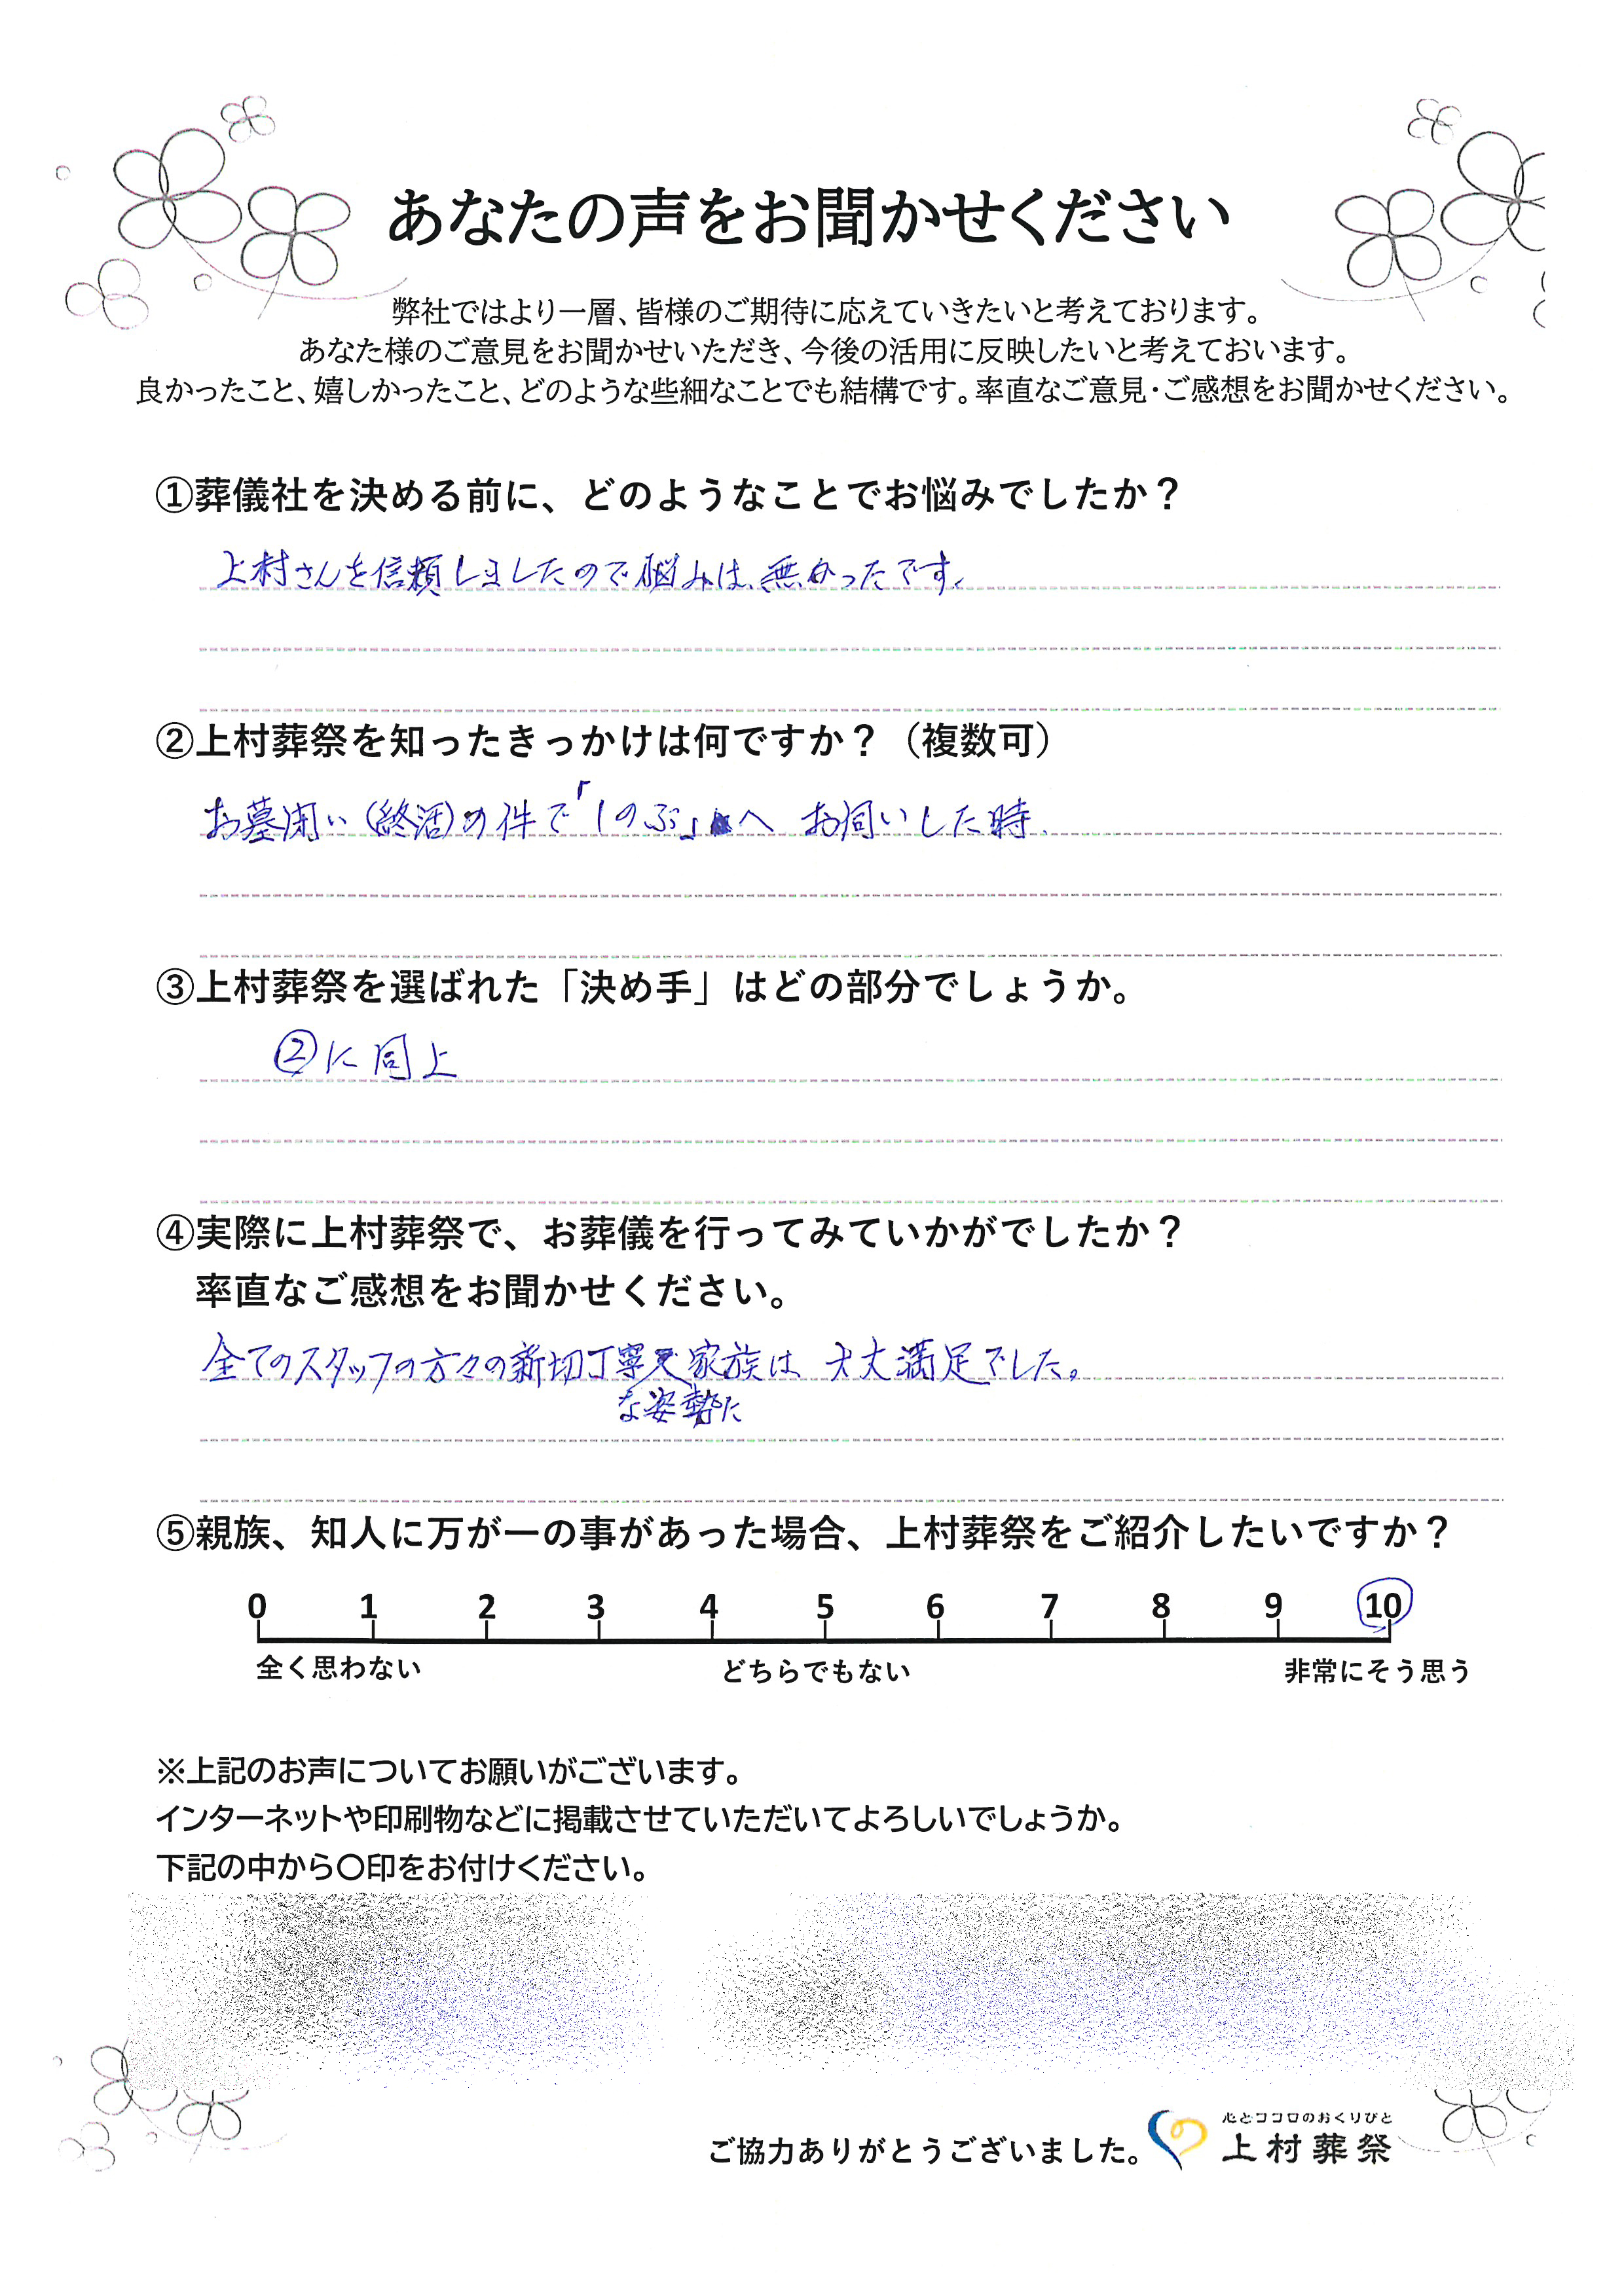 あなたの声をお聞かせください
弊社ではより一層、皆様のご期待に応えていきたいと考えております。
あなた様のご意見をお聞かせいただき、今後の活用に反映したいと考えておいます。
良かったこと、嬉しかったこと、どのような些細なことでも結構です。率直なご意見・ご感想をお聞かせください。
①葬儀社を決める前に、どのようなことでお悩みでしたか？
上村さんを信頼しましたので悩みは、無かったです。
②上村葬祭を知ったきっかけは何ですか？（複数可）
お墓閉い（終活）の件で「しのぶ」へ お伺いした時.
③上村葬祭を選ばれた「決め手」はどの部分でしょうか。
②に同上
④実際に上村葬祭で、お葬儀を行ってみていかがでしたか？
率直なご感想をお聞かせください。
全てのスタッフの方々の親切丁寧 家族は 大大満足でした。
な姿勢に
⑤親族、知人に万が一の事があった場合、上村葬祭をご紹介したいですか？
0 1 2 3 4 5 6 7 8 9 10
全く思わない どちらでもない 非常にそう思う
※上記のお声についてお願いがございます。
インターネットや印刷物などに掲載させていただいてよろしいでしょうか。
下記の中から〇印をお付けください。
心とココロのおくりびと
ご協力ありがとうございました。 上村葬祭